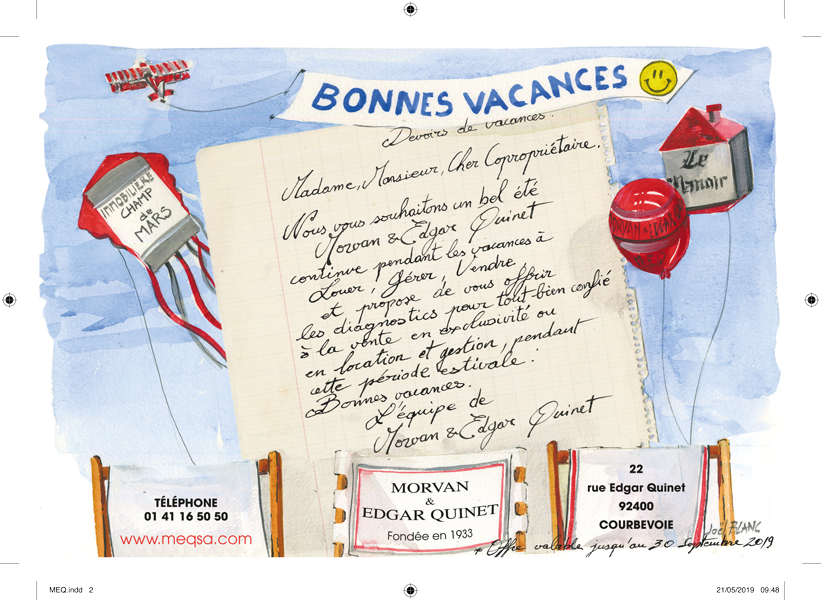 BONNES VACANCES
Devoirs de vacances.
Madame, Monsieur, Cher Copropriétaire.
Nous vous souhaitons un bel été
Morvan & Edgar Quinet
continue pendant les vacances à
Louer, Gérer, Vendre,
et propose de vous offrir
les diagnostics pour tout bien confié
à la vente en exclusivité ou
en location et gestion, pendant
cette période estivale !
Bonnes vacances.
L'équipe de
Morvan & Edgar Quinet
IMMOBILIERE
CHAMP
de
MARS
Le
Manoir
MORVAN & EDGAR
TÉLÉPHONE
01 41 16 50 50
www.meqsa.com
MORVAN
&
EDGAR QUINET
Fondée en 1933
22
rue Edgar Quinet
92400
COURBEVOIE
Joël BLANC
* Offre valable jusqu'au 30 Septembre 2019
MEQ.indd 2
21/05/2019 09:48